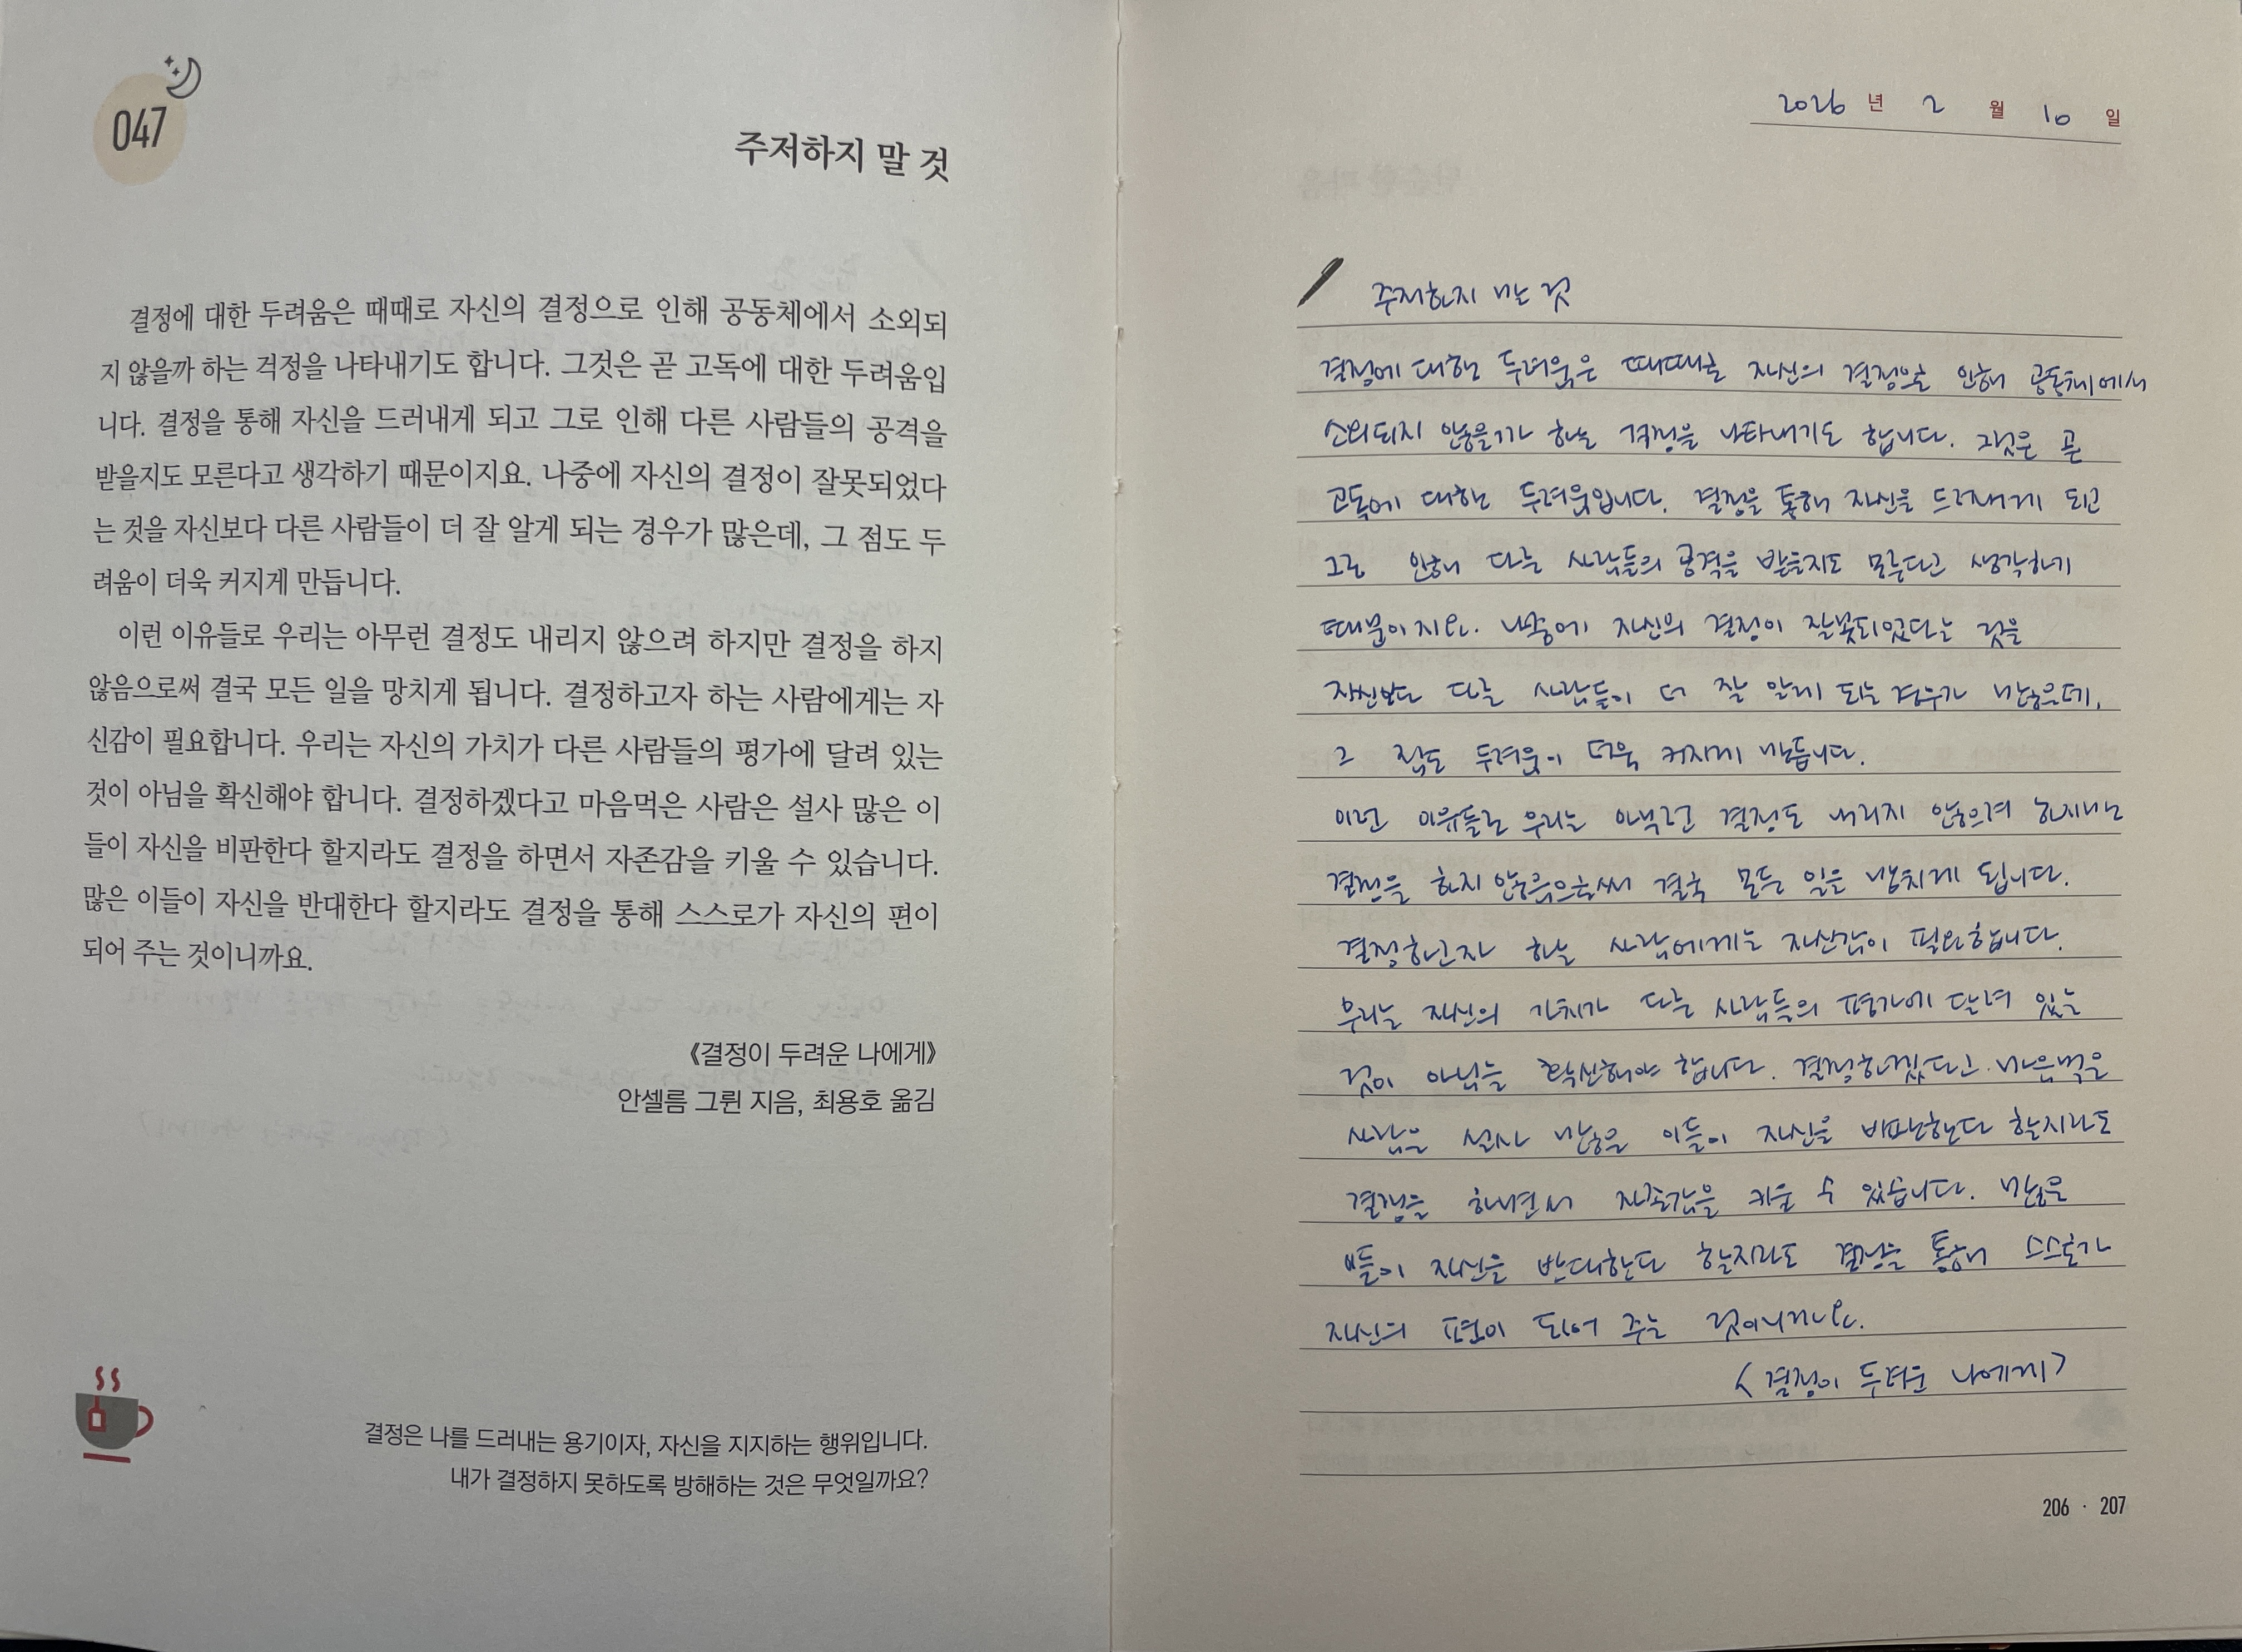 047
주저하지 말 것
결정에 대한 두려움은 때때로 자신의 결정으로 인해 공동체에서 소외되
지 않을까 하는 걱정을 나타내기도 합니다. 그것은 곧 고독에 대한 두려움입
니다. 결정을 통해 자신을 드러내게 되고 그로 인해 다른 사람들의 공격을
받을지도 모른다고 생각하기 때문이지요. 나중에 자신의 결정이 잘못되었다
는 것을 자신보다 다른 사람들이 더 잘 알게 되는 경우가 많은데, 그 점도 두
려움이 더욱 커지게 만듭니다.
이런 이유들로 우리는 아무런 결정도 내리지 않으려 하지만 결정을 하지
않음으로써 결국 모든 일을 망치게 됩니다. 결정하고자 하는 사람에게는 자
신감이 필요합니다. 우리는 자신의 가치가 다른 사람들의 평가에 달려 있는
것이 아님을 확신해야 합니다. 결정하겠다고 마음먹은 사람은 설사 많은 이
들이 자신을 비판한다 할지라도 결정을 하면서 자존감을 키울 수 있습니다.
많은 이들이 자신을 반대한다 할지라도 결정을 통해 스스로가 자신의 편이
되어 주는 것이니까요.
《결정이 두려운 나에게》
안셀름 그륀 지음, 최용호 옮김
결정은 나를 드러내는 용기이자, 자신을 지지하는 행위입니다.
내가 결정하지 못하도록 방해하는 것은 무엇일까요?
2026 년 2 월 10 일
주저하지 말 것
결정에 대한 두려움은 때때로 자신의 결정으로 인해 공동체에서
소외되지 않을까 하는 걱정을 나타내기도 합니다. 그것은 곧
고독에 대한 두려움입니다. 결정을 통해 자신을 드러내게 되고
그로 인해 다른 사람들의 공격을 받을지도 모른다고 생각하기
때문이지요. 나중에 자신의 결정이 잘못되었다는 것을
자신보다 다른 사람들이 더 잘 알게 되는 경우가 많은데,
그 점도 두려움이 더욱 커지게 만듭니다.
이런 이유들로 우리는 아무런 결정도 내리지 않으려 하지만
결정을 하지 않음으로써 결국 모든 일을 망치게 됩니다.
결정하고자 하는 사람에게는 자신감이 필요합니다.
우리는 자신의 가치가 다른 사람들의 평가에 달려 있는
것이 아님을 확신해야 합니다. 결정하겠다고 마음먹은
사람은 설사 많은 이들이 자신을 비판한다 할지라도
결정을 하면서 자존감을 키울 수 있습니다. 많은
이들이 자신을 반대한다 할지라도 결정을 통해 스스로가
자신의 편이 되어 주는 것이니까요.
〈결정이 두려운 나에게〉
206 · 207